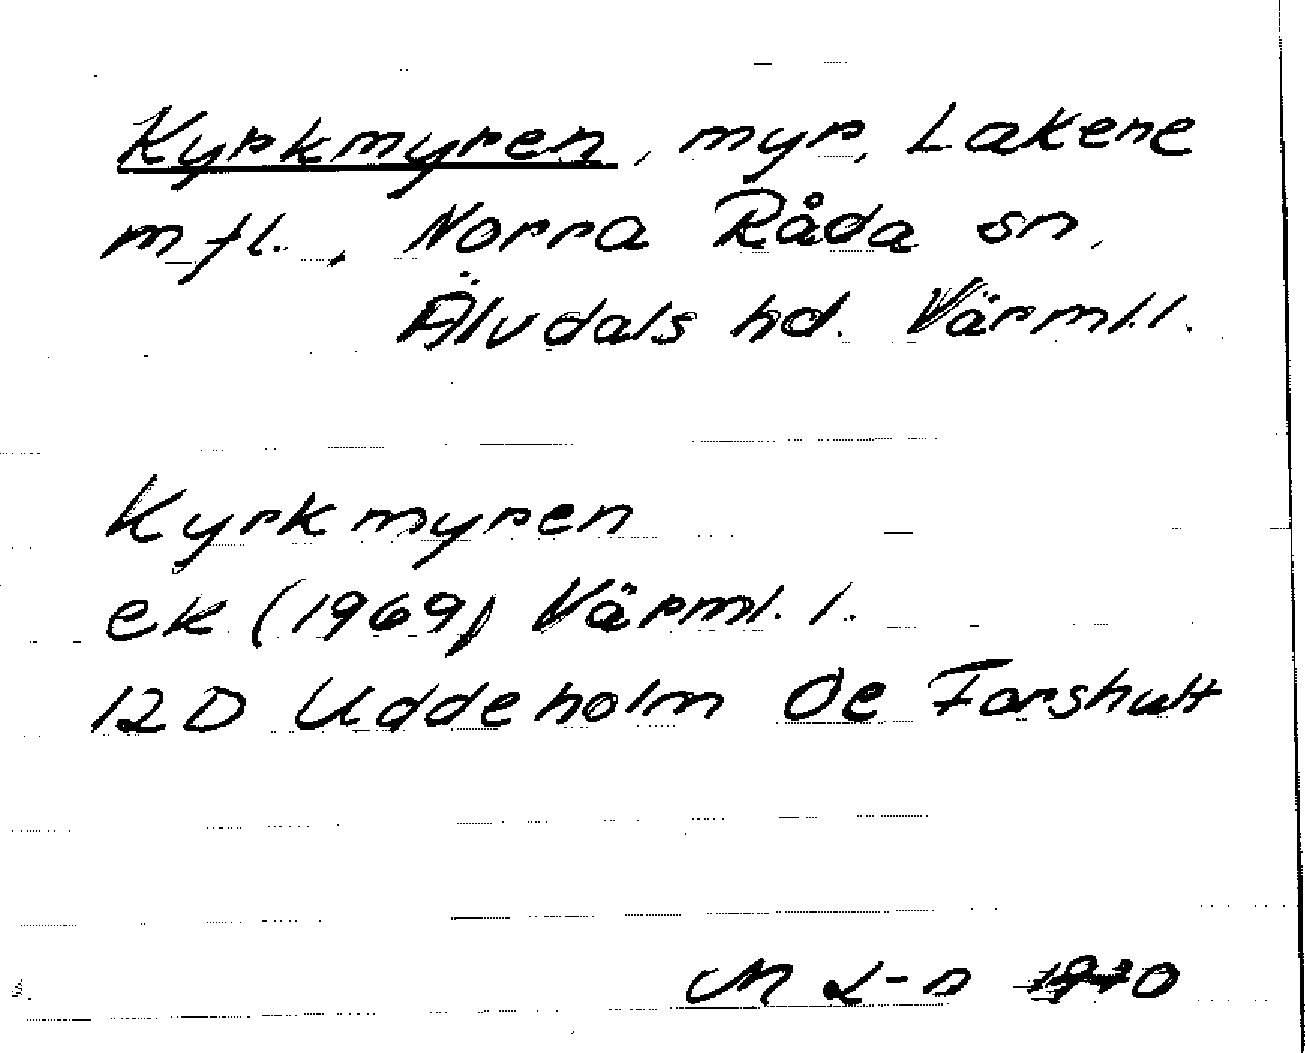 Kyrkmyren, myr, Lakene
m fl., Norra Råda sn,
Älvdals hd. Värml.l.
Kyrkmyren
ek (1969) Värml. l.
12D Uddeholm Oe Forshult
M L-n 1970